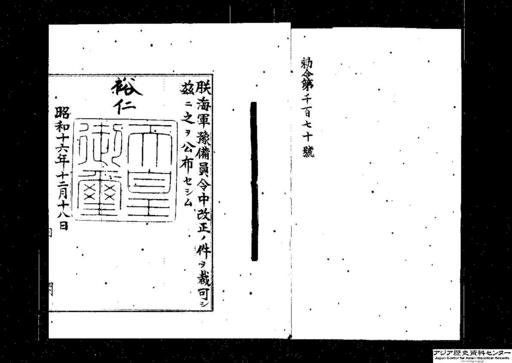 勅令第千百七十號
朕海軍豫備員令中改正ノ件ヲ裁可シ
茲ニ之ヲ公布セシム
裕仁
天皇
御璽
昭和十六年十二月十八日
アジア歴史資料センター
Japan Center for Asian Historical Records